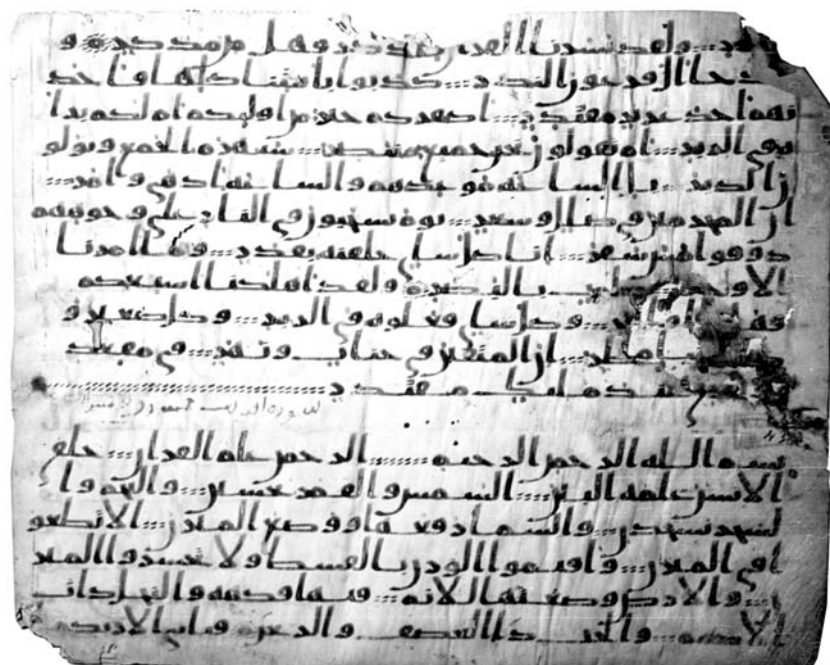 ولقد يسرنا القرن للذكر فهل من مدكر و
لقد جا ال فرعون النذر كذبوا بايتنا كلها فاخذ
نهم اخذ عزيز مقتدر اكفركم خير من اوليكم ام لكم برا
ة في الزبر ام يقولون نحن جميع منتصر سيهزم الجمع ويولو
ن الدبر بل الساعة موعدهم والساعة ادهى وامر
ان المجرمين في ضلل وسعر يوم يسحبون في النار على وجوههم
ذوقوا مس سقر انا كل شي خلقنه بقدر وما امرنا
الا وحدة كلمح بالبصر ولقد اهلكنا اشيعكم
فهل من مدكر وكل شي فعلوه في الزبر وكل صغير و
مستطر ان المتقين في جنت ونهر في مقعد
صدق عند مليك مقتدر
بسم الله الرحمن الرحيم الرحمن علم القران خلق
الانسن علمه البين الشمس والقمر بحسبن والنجم وا
لشجر يسجدن والسما رفعها ووضع الميزن الا تطغو
ا في الميزن واقيموا الوزن بالقسط ولا تخسروا الميز
ن والارض وضعها للانم فيها فكهة والنخل ذات
الاكمم والحب ذا العصف والريحن فباي الا ربكما